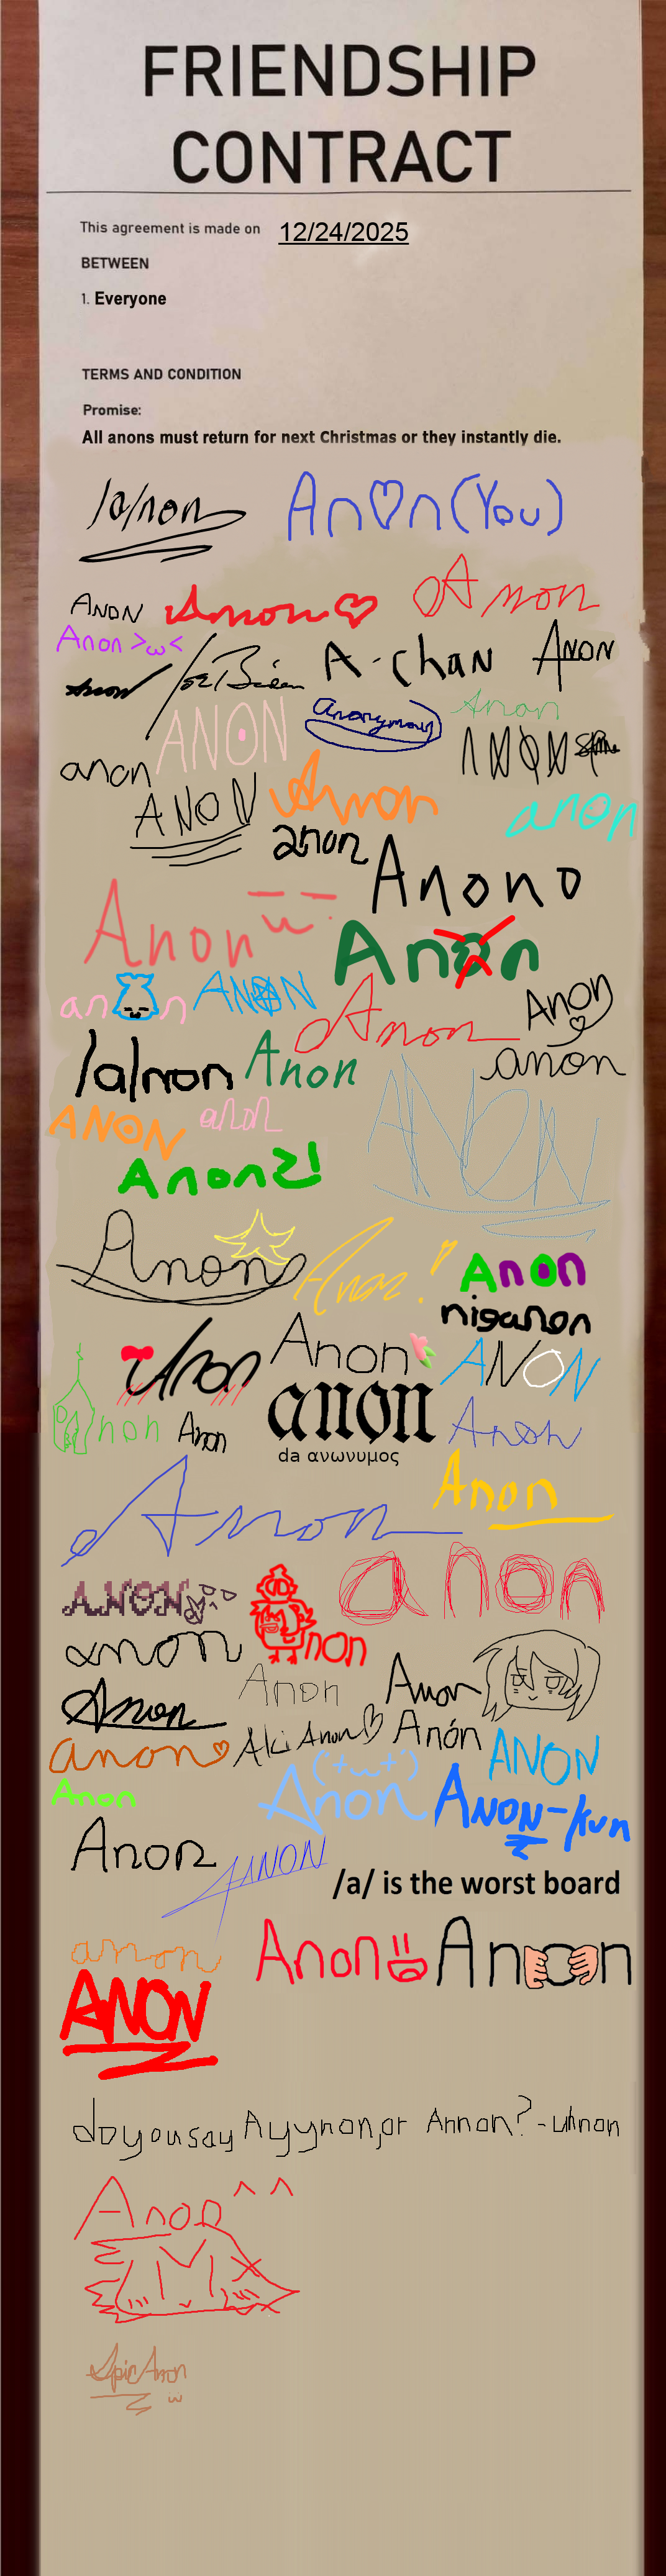 FRIENDSHIP
CONTRACT
This agreement is made on 12/24/2025
BETWEEN
1. Everyone
TERMS AND CONDITION
Promise:
All anons must return for next Christmas or they instantly die.
/a/non
An♡n (You)
ANON
Anon ♡
Anon
Anon >ω<
Anon
Joe Biden
A-chan
ANON
ANON
Anonymous
Anon
anon
ANON
ANON
Anon
anon
anon
Anono
Anon
Anon
an n
ANON
Anon
Anon
/a/non
Anon
anon
ANON
anon
ANON
Anonz!
Anon
Anon!
Anon
niganon
Anon
Anon
ANON
Anon
Anon
anon
da ανωνυμος
Anon
Anon
Anon
ANON
non
anon
anon
Anon
Anon
Anon
anon ♡
Aki Anon ♡
Anón
ANON
Anon
Anon
('+ω+')
ANON-kun
Anon
ANON
/a/ is the worst board
anon
Anon
Anon
ANON
do you say Ayynon, or Annon? - uhnon
Anon ^^
EpicAnon